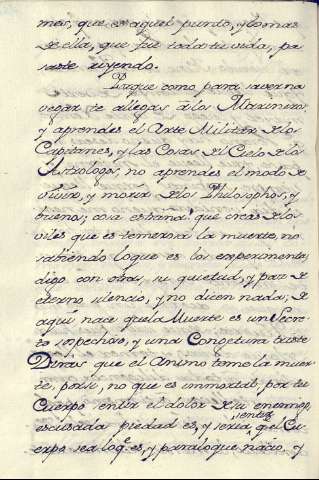 mes, que es aquel punto, y lo mas
de ella, que fue toda tu vida, pa
saste riyendo.
Pues que como para saver na
vegar te allegas á los Marineros
y aprendes el Arte Militar de los
Capitanes, y las Cosas del Cielo de los
Astrologos, no aprendes el modo de
vivir, y morir de los Philosophos, y
buenos; cosa estraña! que creas de los
viles que es temerosa la muerte, no
sabiendo lo que es los experimenta
digo con otras, su quietud, y paz de
eterno silencio, y no dicen nada; de
aqui nace que la Muerte es un Secre
to sospechoso, y una Congetura triste
Dirás que el Animo teme la muer
te, por si, no que es immortal, por tu
Cuerpo sentir el dolor de su enemigo
escusada piedad es, y seria sentir q.e el Cu
erpo sea loq.e es, y para loque nacio, y